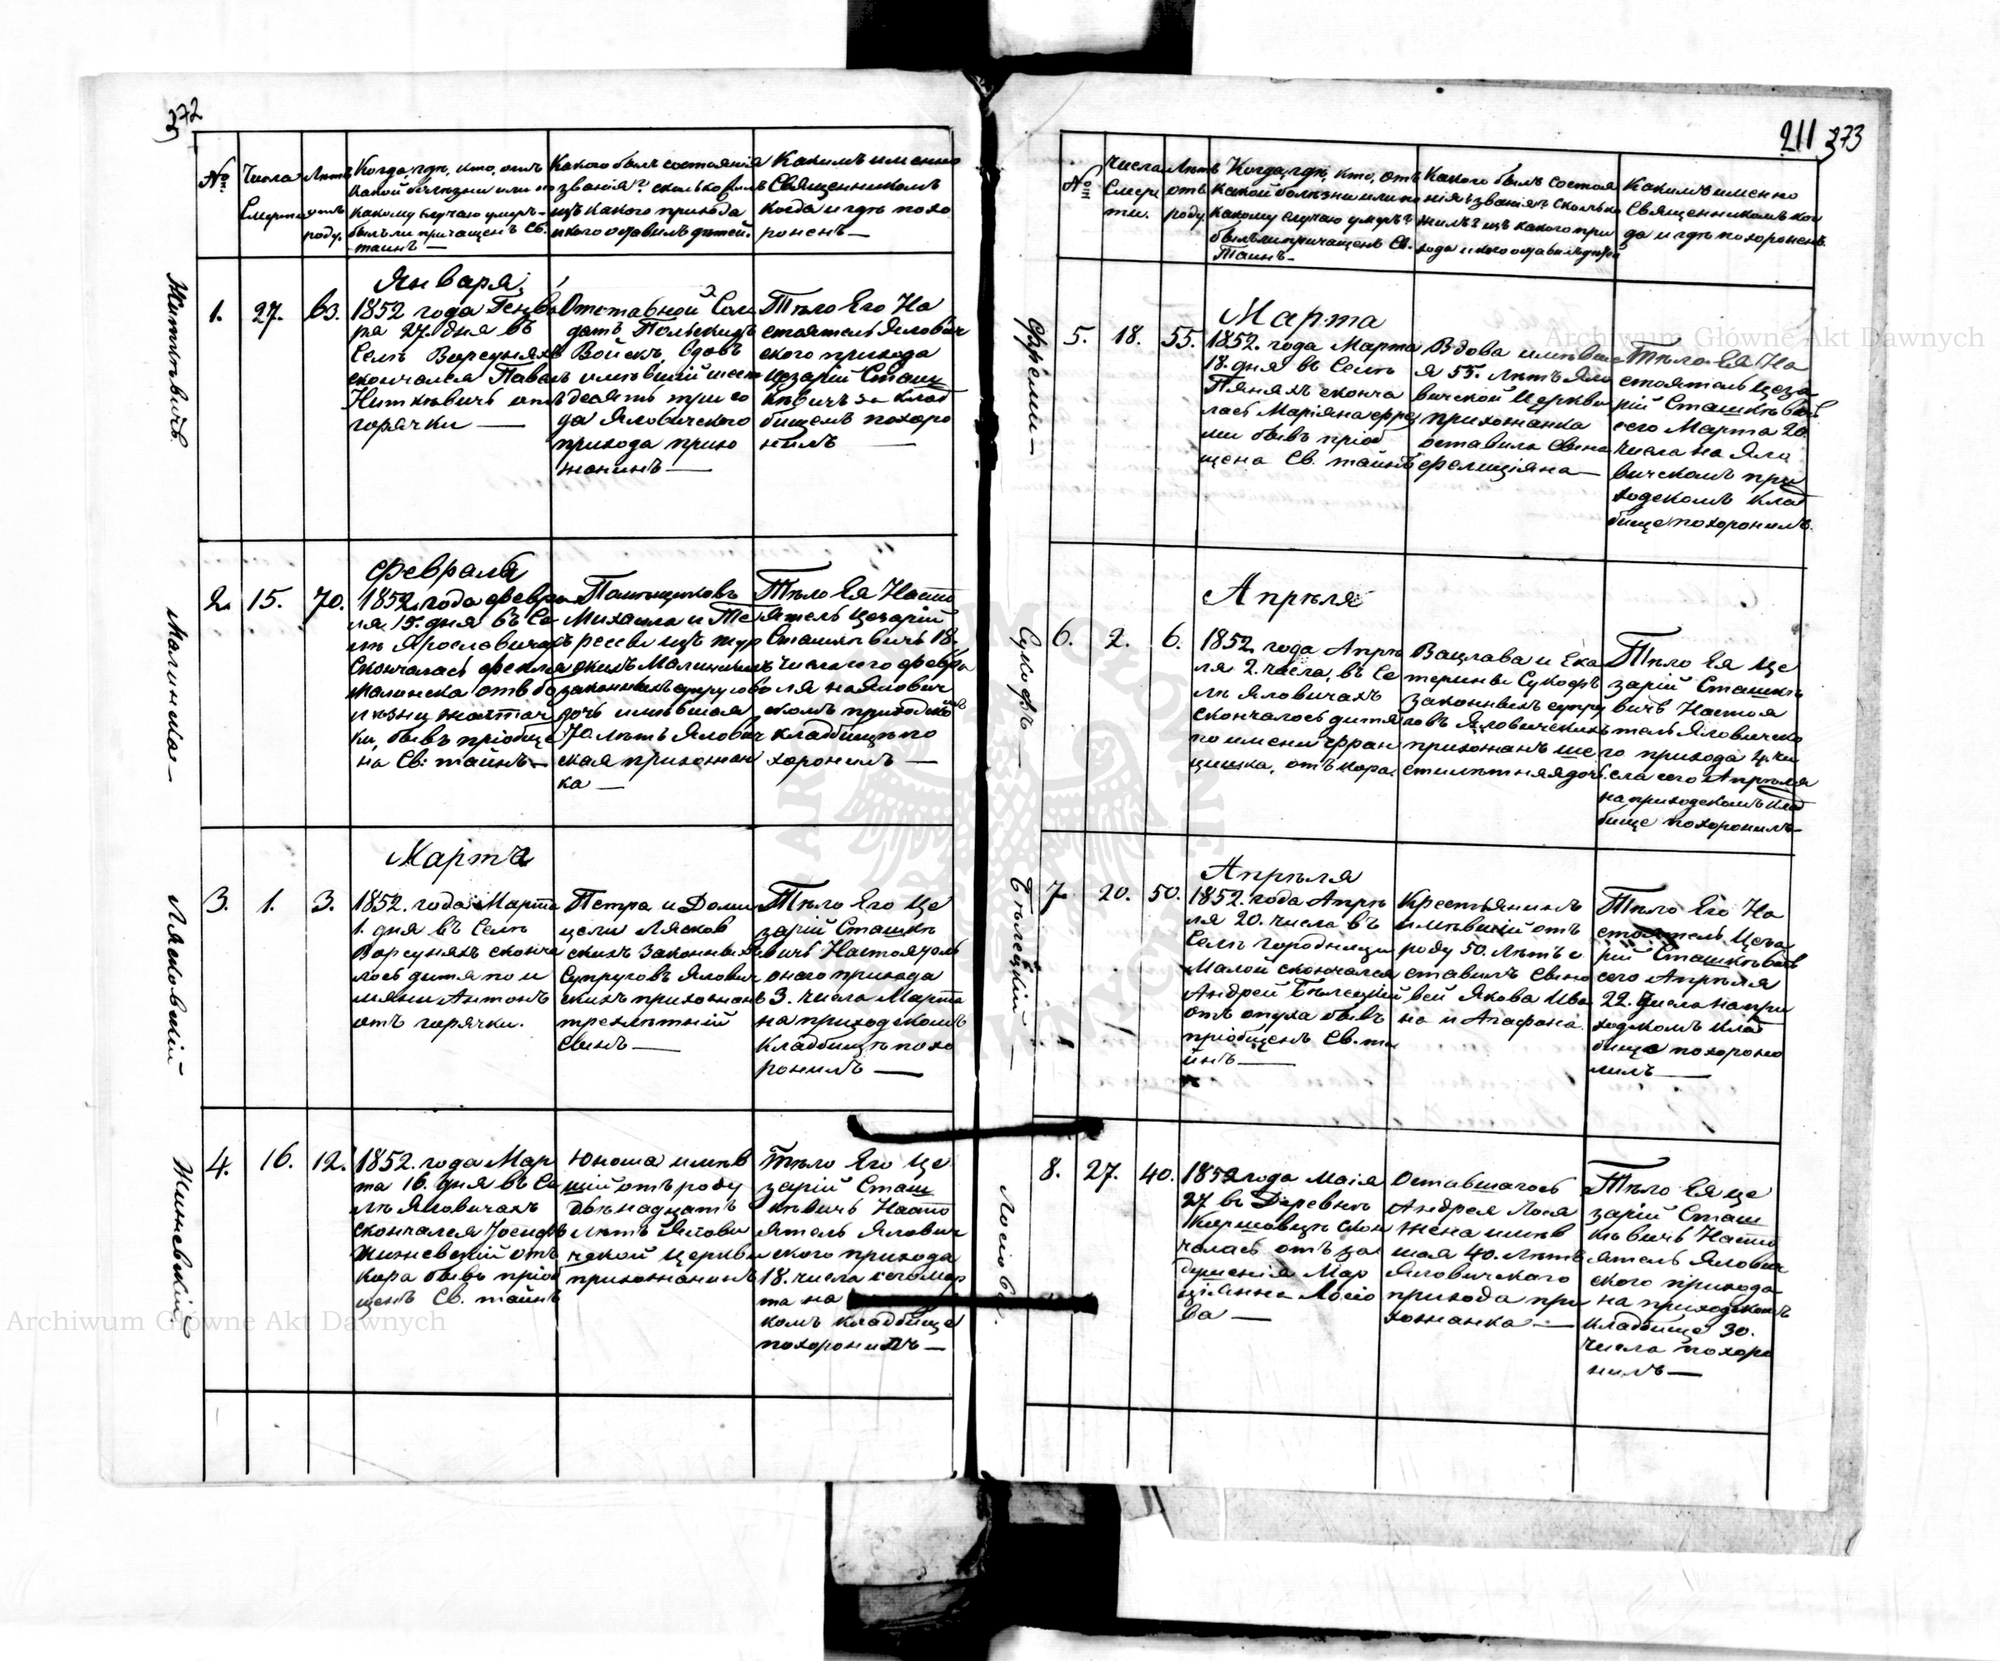 372
№
Числа Смерти
Лѣтъ отъ роду.
Когда, гдѣ, кто, отъ
какой болѣзни или по
какому случаю умеръ
былъ ли причащенъ Св.
таинъ —
Какого былъ состоянія
званія? сколько
изъ какого прихода
и кого оставилъ дѣтей.
Какимъ именно
Священникомъ
когда и гдѣ похо
роненъ —
Января
1. 27. 63.
1852 года Генва
ря 27. дня въ
Селѣ
скончался Павелъ
отъ
горячки —
Отставной Сол
датъ Польскихъ
Войскъ,
имѣвшій шесть
десятъ три го
да Яловичского
прихода прихо
жанинъ —
Тѣло Его На
стоятельЯлович
ского прихода
Цезарій Сташ
кѣвичъ на клад
бищѣ похоро
нилъ —
Февраля
Малинская —
2. 15. 70.
1852. года Февра
ля 15. дня въ Се
лѣ Ярославичахъ
Скончалась Фекла
Малинска отъ бо
лѣзни
ки, бывъ пріобще
на Св: тайнъ —
Помѣщиковъ
Михаила и Те
ресы изъ
Малинскихъ
законныхъ супруговъ
дочь имѣвшая
70. лѣтъ Ялович
ская прихожан
ка —
Тѣло Ея Насто
ятель Цезарій
Сташкѣвичъ 18.
числа сего Февра
ля на Ялович
скомъ приходско
кладбищѣ по
хоронилъ —
Марта
Лясковскій
3. 1. 3.
1852. года Марта
1. дня въ Селѣ
Ворсуняхъ сконча
лось дитя по и
мяни Антонъ
отъ горячки.
Петра и Доми
цели Лясков
скихъ законныхъ
Супруговъ Ялович
скихъ прихожанъ
трехлѣтній
Сынъ —
Тѣло Его Це
зарій Сташкѣ
вичъ Настоятель
онаго прихода
3. числа Марта
на приходскомъ
Кладбищѣ похо
ронилъ —
4. 16. 12.
1852. года Мар
та 16. дня въ Се
лѣ Яловичахъ
скончался Іосифъ
отъ
кора бывъ пріоб
щенъ Св. тайнъ
Юноша имѣв
шій отъ роду
двѣнадцать
лѣтъ Ялови
чской Церкви
прихожанинъ
Тѣло Его Це
зарій Сташ
кѣвичъ Насто
ятель Ялович
ского прихода
18. числа сего Мар
та на
комъ кладбище
похоронилъ —
211 373
№
Числа Смерти.
Лѣтъ отъ роду
Когда, гдѣ, кто, отъ
какой болѣзни или по
какому случаю умеръ?
былъ ли причащенъ Св.
Таинъ —
Какого былъ состоя
нія званія сколько
жилъ? изъ какого при
хода и кого оставилъ дѣтей
Какимъ именно
Священникомъ ког
да и гдѣ похороненъ.
Марта
5. 18. 55.
1852. года Марта
18. дня въ Селѣ
Пяняхъ сконча
лась Маріяна
бывъ пріоб
щена Св. тайнъ
Вдова имѣвша
я 55. лѣтъ Яло
вичской Церкви
прихожанка
оставила Сына
Фелиціяна —
Тѣло Ея На
стоятель Цеза
рій Сташкѣвичъ
сего Марта 20.
числа на Яло
вичскомъ при
ходскомъ клад
бище похоронилъ.
Апрѣля
Сукофъ —
6. 2. 6.
1852 года Апрѣ
ля 2. числа, въ Се
лѣ Яловичахъ
скончалось дитя
по имени Фран
цишка, отъ кора,
Вацлава и Ека
терины Сукофъ
законныхъ супру
говъ Яловичскихъ
прихожанъ ше
стилѣтняя дочь
Тѣло Ея Це
зарій Сташкѣ
вичъ Настоя
тель Яловичско
го прихода 4. чи
сла сего Апрѣля
на приходскомъ клад
бище похоронилъ —
Апрѣля
Бѣлецкій —
7. 20. 50.
1852. года Апрѣ
ля 20. числа въ
Селѣ Городници
Малой скончался
Андрей Бѣлецкій
отъ опуха бывъ
пріобщенъ Св. та
йнъ —
Крестьянинъ
имѣвшій отъ
роду 50. лѣтъ о
ставилъ Сыно
вей Якова Ива
на и Агафона.
Тѣло Его На
стоятель Цеза
рій Сташкѣвичъ
сего Апрѣля
22. числа на при
ходскомъ клад
бище похоро
нилъ —
Лосіова.
8. 27. 40.
1852 года Маія
27 въ Деревнѣ
скон
чалась отъ
Мар
ціянна Лосіо
ва —
Оставшагось
Андрея Лося
жена имѣв
шая 40. лѣтъ
Яловичского
прихода при
хожанка —
Тѣло Ея Це
зарій Сташ
кѣвичъ Насто
ятель Ялович
ского прихода
на приходскомъ
кладбище 30.
числа похоро
нилъ —
Archiwum Główne Akt Dawnych
Archiwum Główne Akt Dawnych